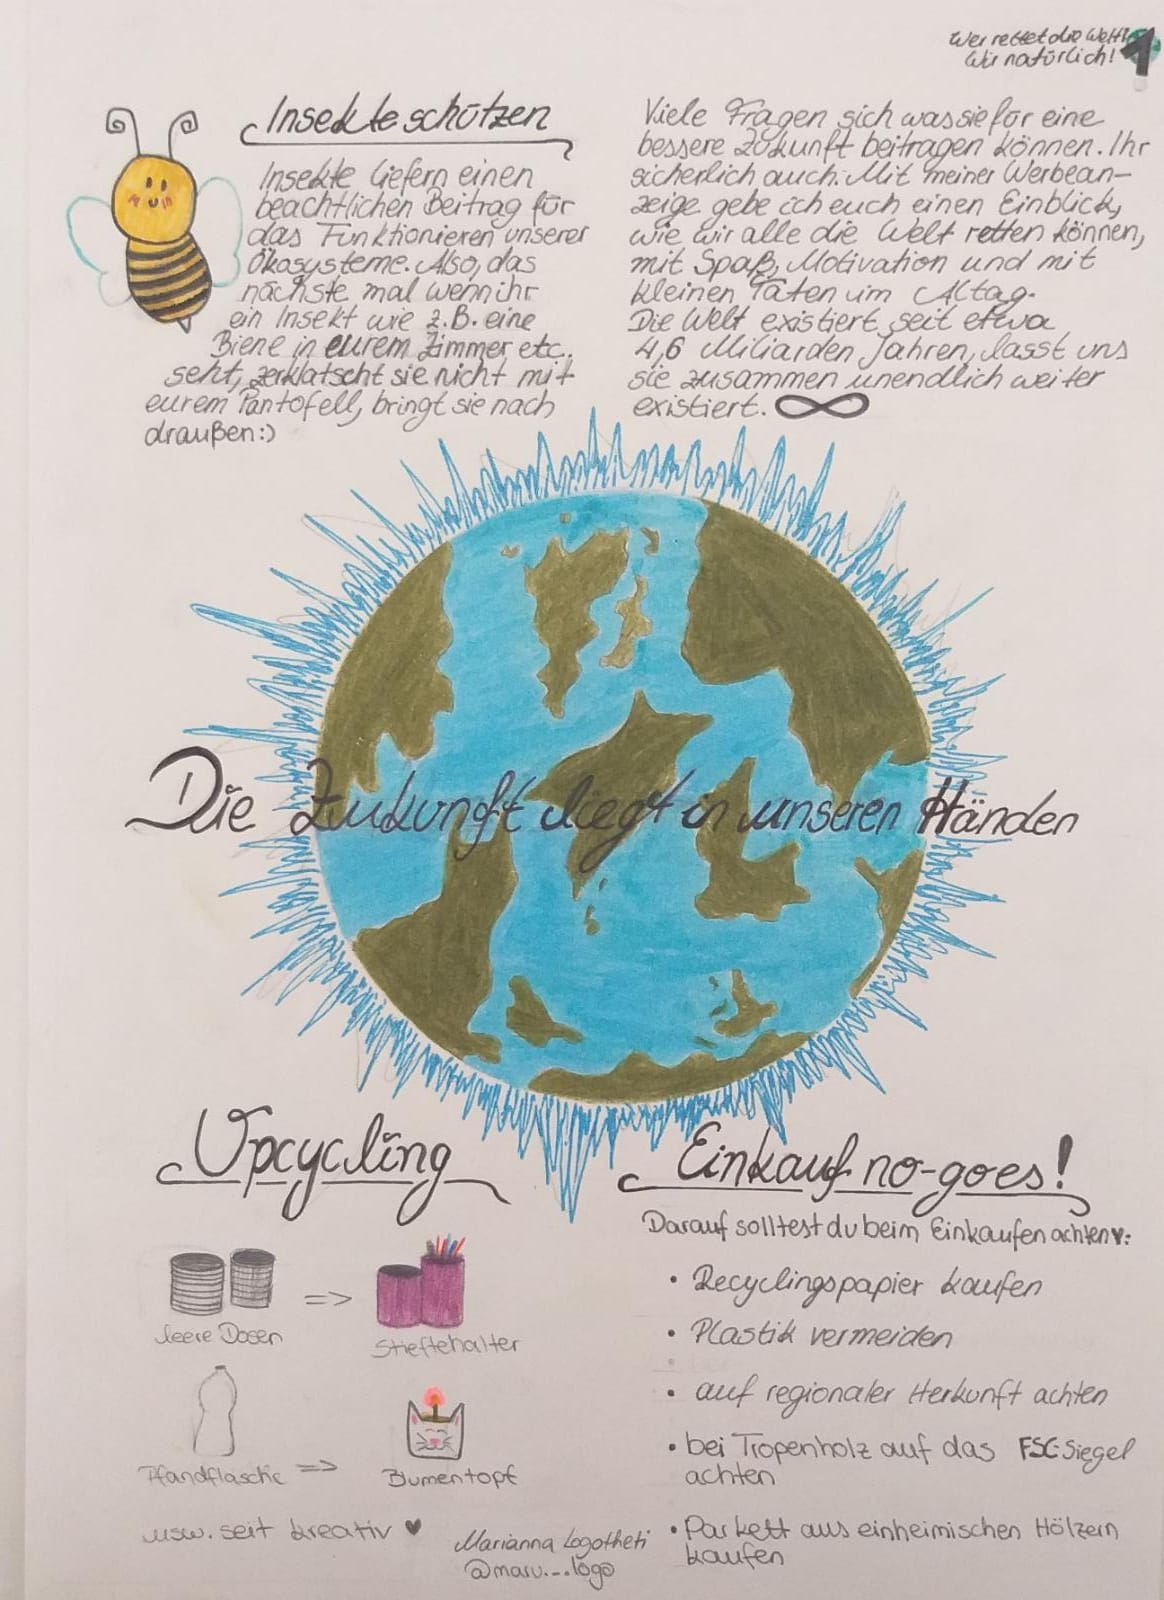 Wer rettet die Welt?
Wir natürlich!
1
Insekte schützen
Insekte liefern einen
beachtlichen Beitrag für
das Funktionieren unserer
Ökosysteme. Also, das
nächste mal wenn ihr
ein Insekt wie z.B. eine
Biene in eurem Zimmer etc.
seht, zerklatscht sie nicht mit
eurem Pantofell, bringt sie nach
draußen:)
Viele Fragen sich was sie für eine
bessere Zukunft beitragen können. Ihr
sicherlich auch. Mit meiner Werbean-
zeige gebe ich euch einen Einblick,
wie wir alle die Welt retten können,
mit Spaß, Motivation und mit
kleinen Taten im Altag.
Die Welt existiert seit etwa
4,6 Miliarden Jahren, lasst uns
sie zusammen unendlich weiter
existiert. ∞
Die Zukunft liegt in unseren Händen
Upcycling
leere Dosen => Stieftehalter
Pfandflasche => Blumentopf
usw. seit kreativ ♥
Marianna Logotheti
@maru._._logo
Einkauf no-goes!
Darauf solltest du beim Einkaufen achten♥:
• Recyclingspapier kaufen
• Plastik vermeiden
• auf regionaler Herkunft achten
• bei Tropenholz auf das FSC-Siegel
achten
• Parkett aus einheimischen Hölzern
kaufen